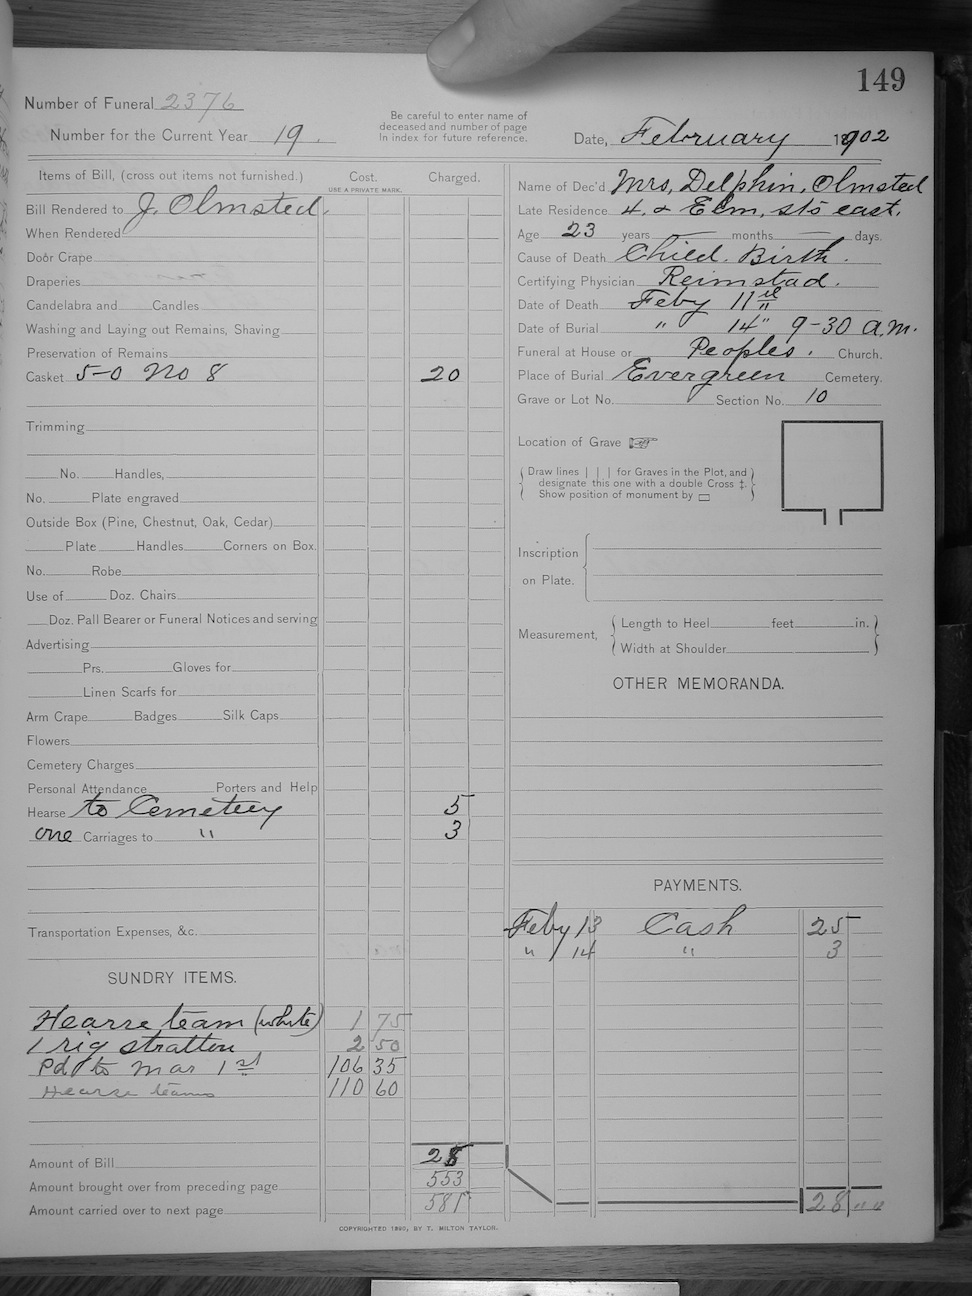 149
Number of Funeral 2376
Number for the Current Year 19.
Be careful to enter name of
deceased and number of page
in index for future reference.
Date, February 1902
Items of Bill, (cross out items not furnished.) Cost. Charged.
USE A PRIVATE MARK.
Bill Rendered to J. Olmsted.
When Rendered
Door Crape
Draperies
Candelabra and Candles
Washing and Laying out Remains, Shaving
Preservation of Remains
Casket 5-0 No 8 20
Trimming
No. Handles,
No. Plate engraved
Outside Box (Pine, Chestnut, Oak, Cedar)
Plate Handles Corners on Box.
No. Robe
Use of Doz. Chairs
Doz. Pall Bearer or Funeral Notices and serving
Advertising
Prs. Gloves for
Linen Scarfs for
Arm Crape Badges Silk Caps
Flowers
Cemetery Charges
Personal Attendance Porters and Help
Hearse to Cemetery 5
one Carriages to " 3
Transportation Expenses, &c.
SUNDRY ITEMS.
Hearse team (white) 1 75
1 rig stratton 2 50
Pd to Mar 1st 106 35
Hearse teams 110 60
Amount of Bill 28
Amount brought over from preceding page 553
Amount carried over to next page 581
COPYRIGHTED 1890, BY T. MILTON TAYLOR.
Name of Dec'd Mrs, Delphin, Olmsted
Late Residence 4. & Elm, sts east.
Age 23 years months days.
Cause of Death Child. Birth.
Certifying Physician Reimstad.
Date of Death Feby 11
Date of Burial " 14" 9-30 a.m.
Funeral at House or Peoples. Church.
Place of Burial Evergreen Cemetery.
Grave or Lot No. Section No. 10
Location of Grave
Draw lines | | | for Graves in the Plot, and
designate this one with a double Cross ‡.
Show position of monument by ▭
Inscription
on Plate.
Measurement, Length to Heel feet in.
Width at Shoulder
OTHER MEMORANDA.
PAYMENTS.
Feby 13 Cash 25
" 14 " 3
28